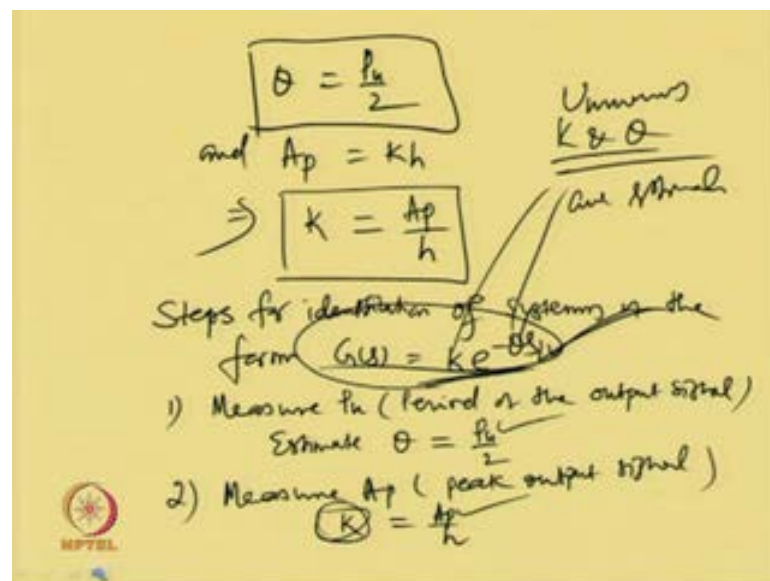 θ = Pu/2
and Ap = Kh
⇒ K = Ap/h
Unknowns
K & θ
are
Steps for identification of systems of the
form G(s) = K e^-θs
1) Measure Pu (Period of the output signal)
Estimate θ = Pu/2
2) Measure Ap (peak output signal)
K = Ap/h
NPTEL